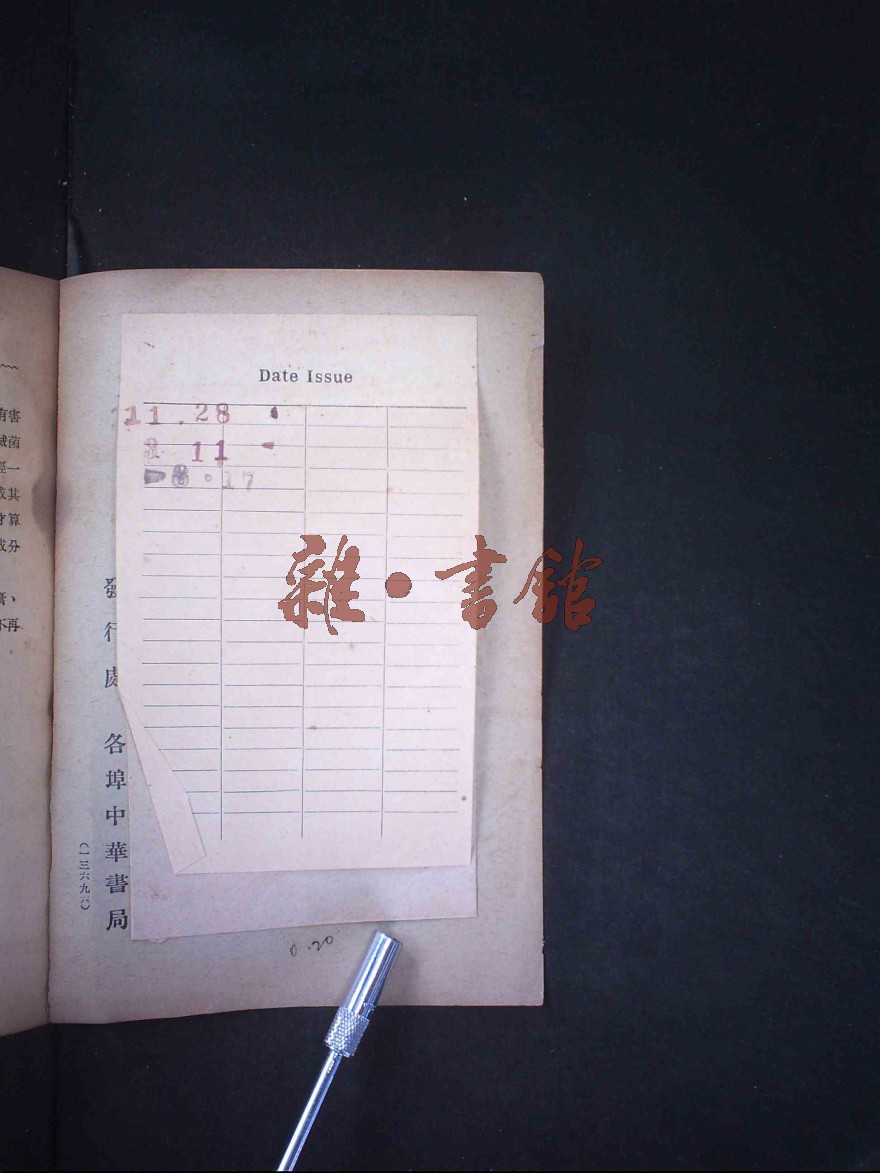 Date Issue
11.28
11
8.17
雜·書館
發行處 各埠中華書局
(一三六九六)
0.20
有害
滅菌
一
其
才算
成分
不再